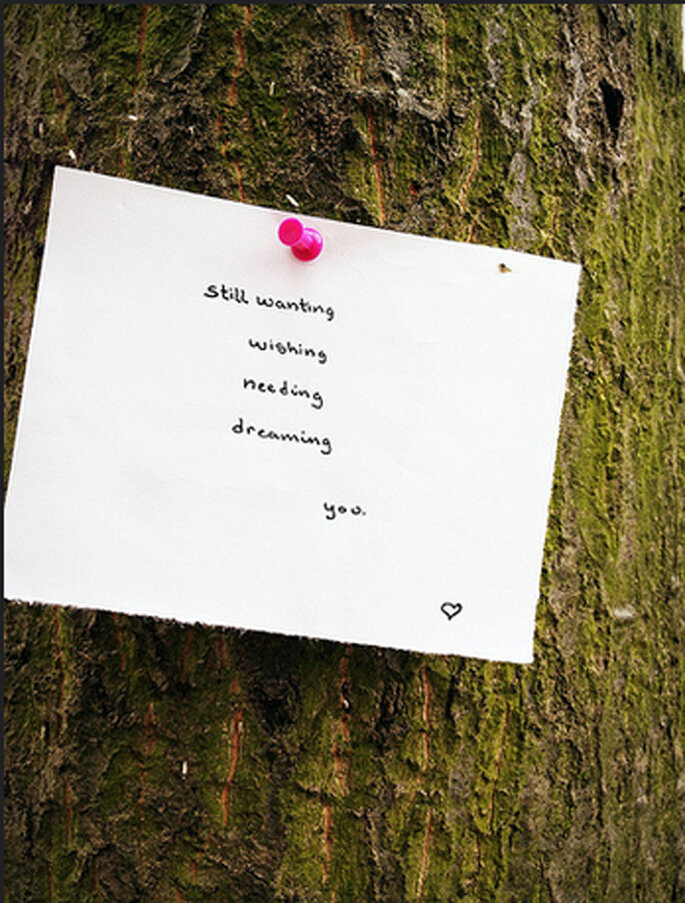 Still wanting
wishing
needing
dreaming
you.